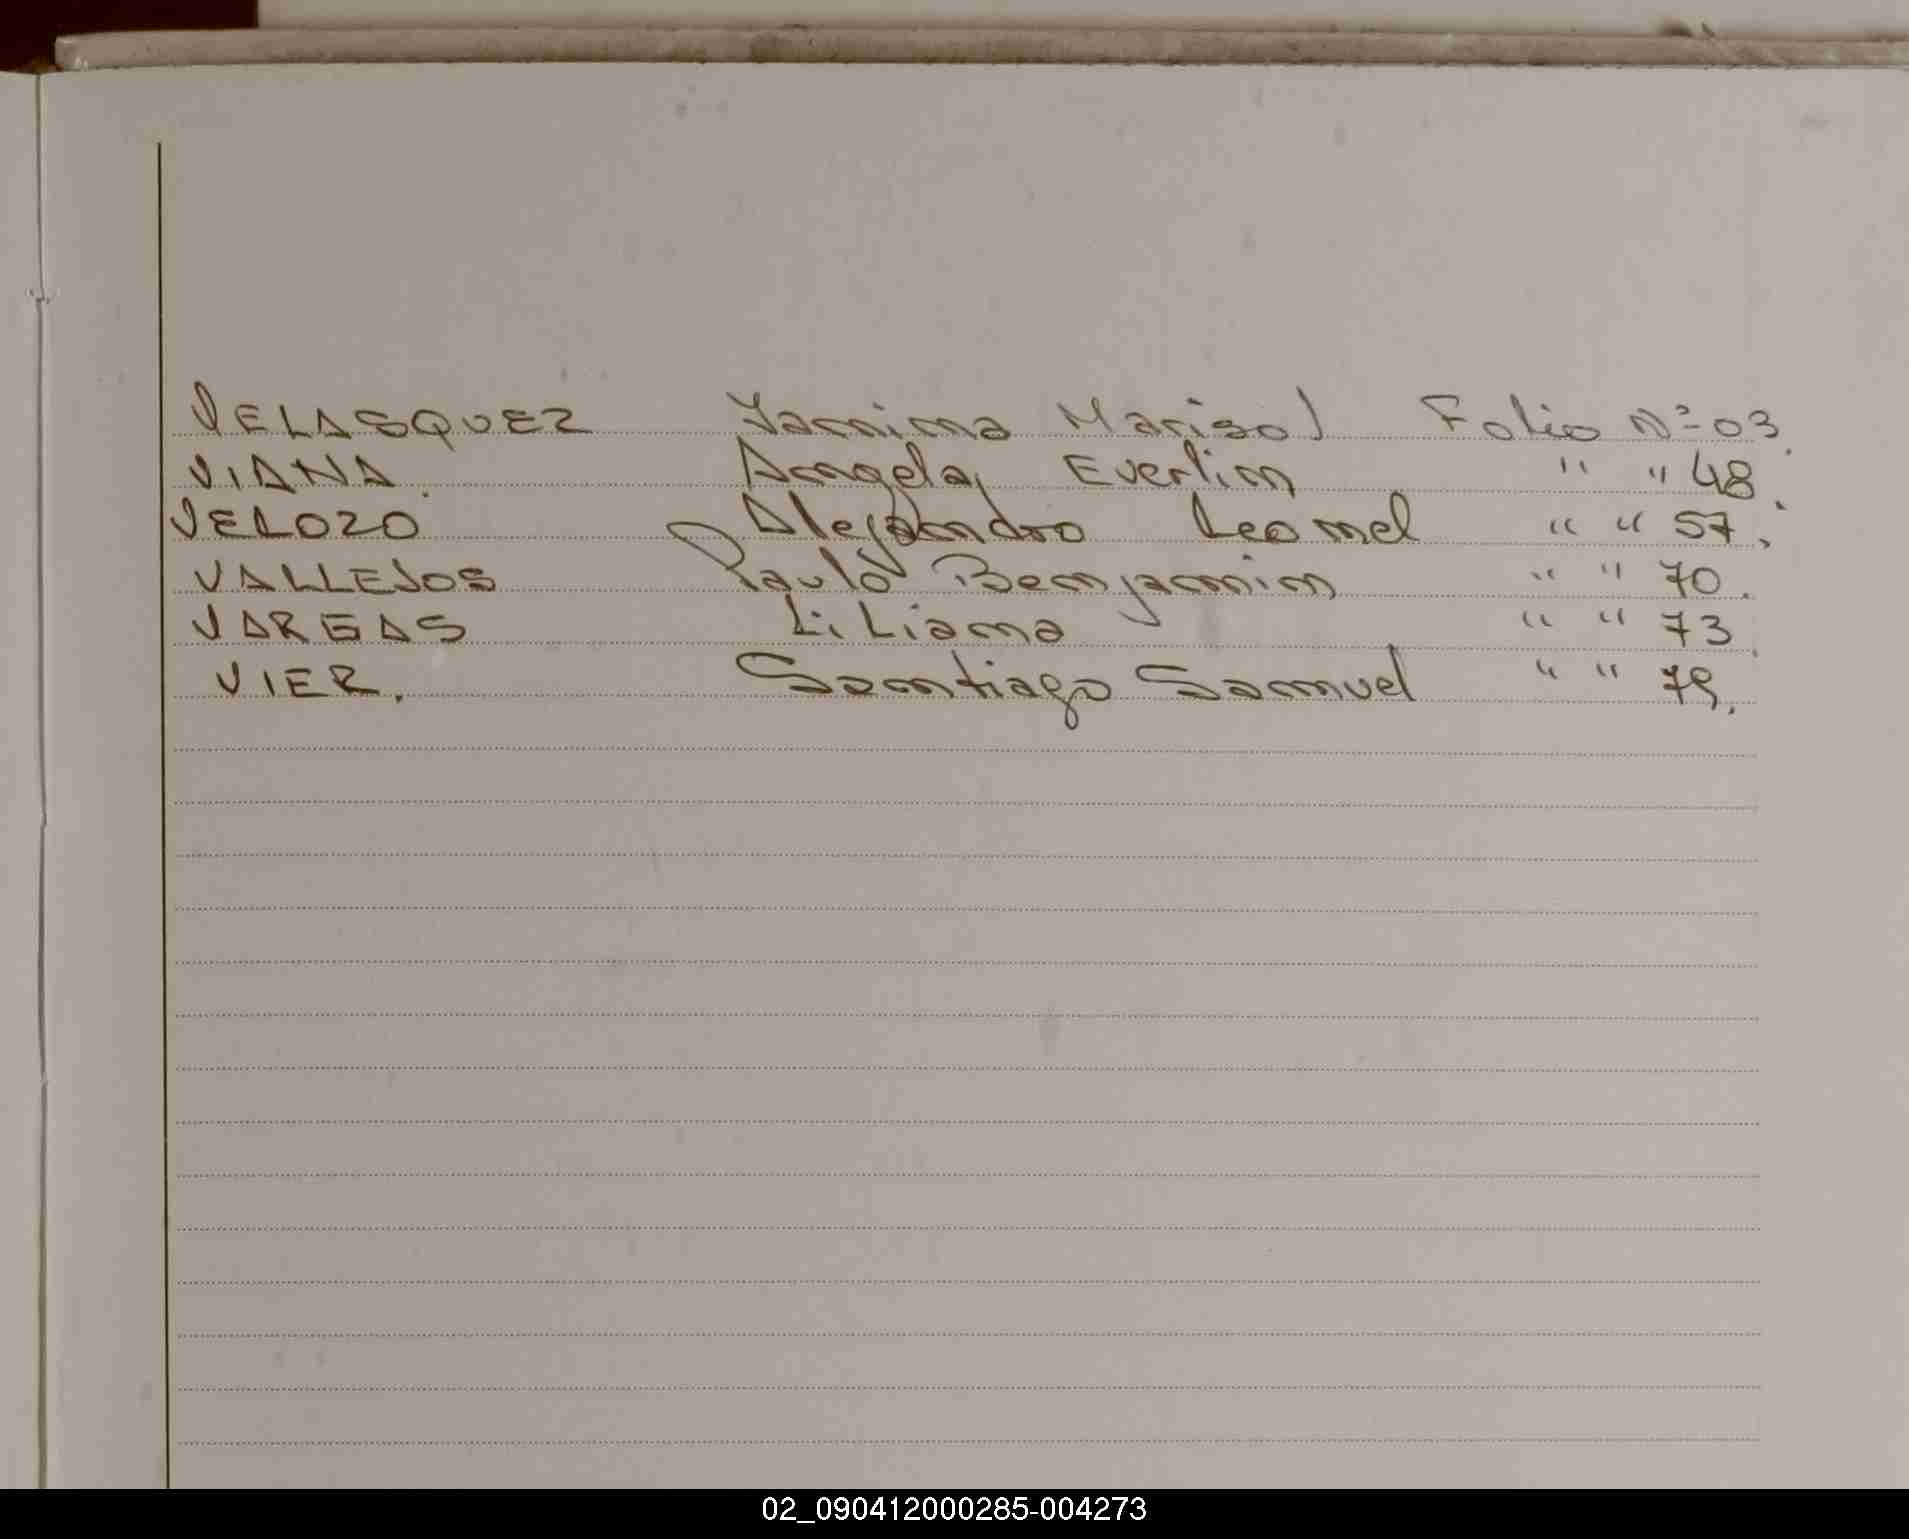 VELASQUEZ Yanina Marisol Folio Nº 03.
VIANA. Angela Everlin " " 48.
VELOZO Alejandro Leonel " " 57.
VALLEJOS Paulo Benjamin " " 70.
VARGAS LiLiana " " 73.
VIER. Santiago Samuel " " 79.
02_090412000285-004273